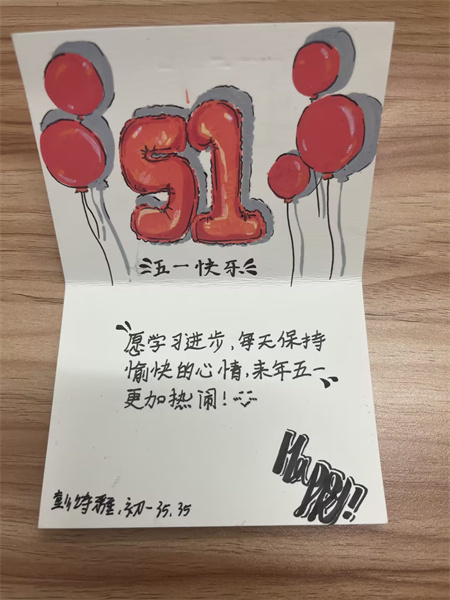 51
五一快乐
愿学习进步,每天保持
愉快的心情,来年五一
更加热闹!
HAPPY!!
初一35,35